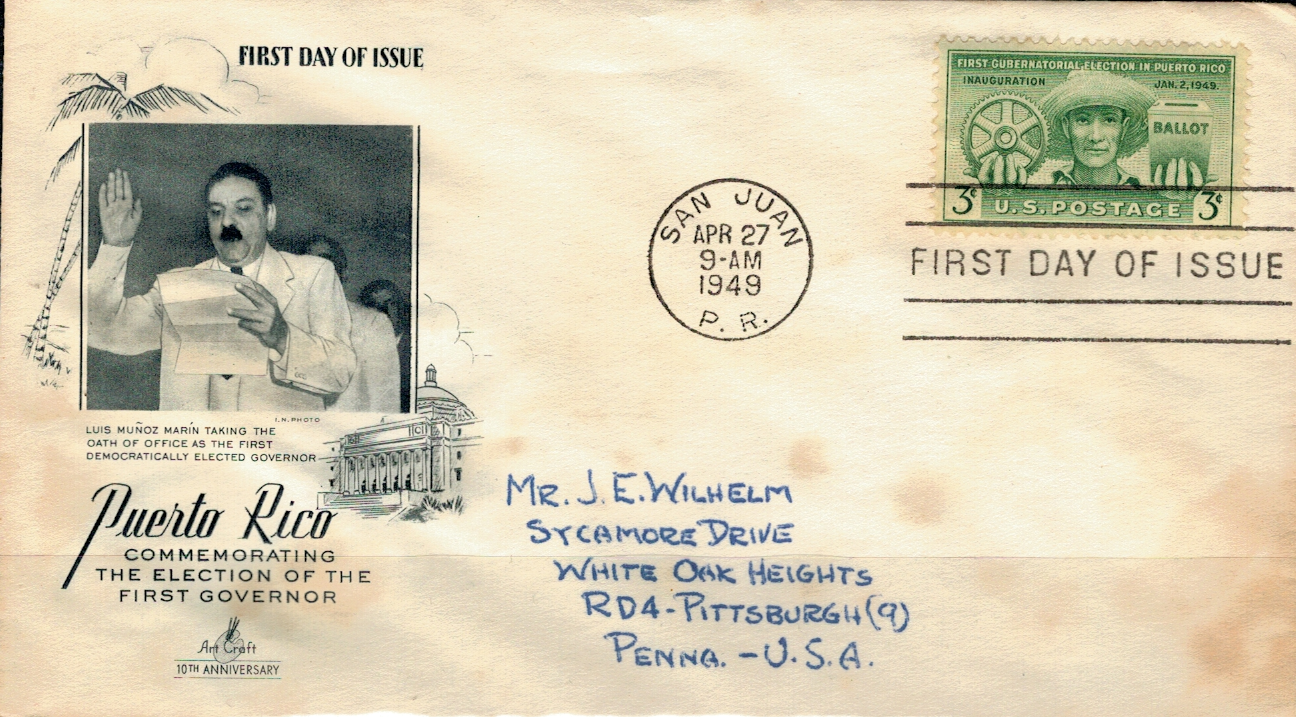 FIRST DAY OF ISSUE
I.N. PHOTO
LUIS MUÑOZ MARÍN TAKING THE
OATH OF OFFICE AS THE FIRST
DEMOCRATICALLY ELECTED GOVERNOR
Puerto Rico
COMMEMORATING
THE ELECTION OF THE
FIRST GOVERNOR
Art Craft
10TH ANNIVERSARY
SAN JUAN
APR 27
9-AM
1949
P. R.
FIRST GUBERNATORIAL ELECTION IN PUERTO RICO
INAUGURATION JAN. 2, 1949.
BALLOT
3¢ U.S. POSTAGE 3¢
FIRST DAY OF ISSUE
MR. J. E. WILHELM
SYCAMORE DRIVE
WHITE OAK HEIGHTS
RD4-PITTSBURGH (9)
PENNA. - U.S.A.